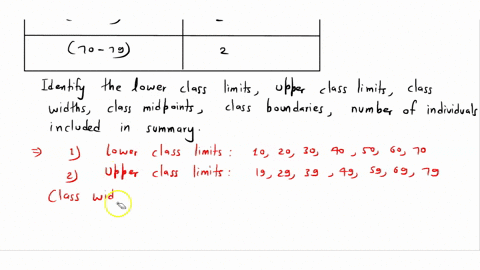 (70-79) 2
Identify the lower class limits, upper class limits, class
widths, class midpoints, class boundaries, number of individuals
included in summary.
⇒ 1) Lower class limits: 10, 20, 30, 40, 50, 60, 70
2) Upper class limits: 19, 29, 39, 49, 59, 69, 79
Class wid